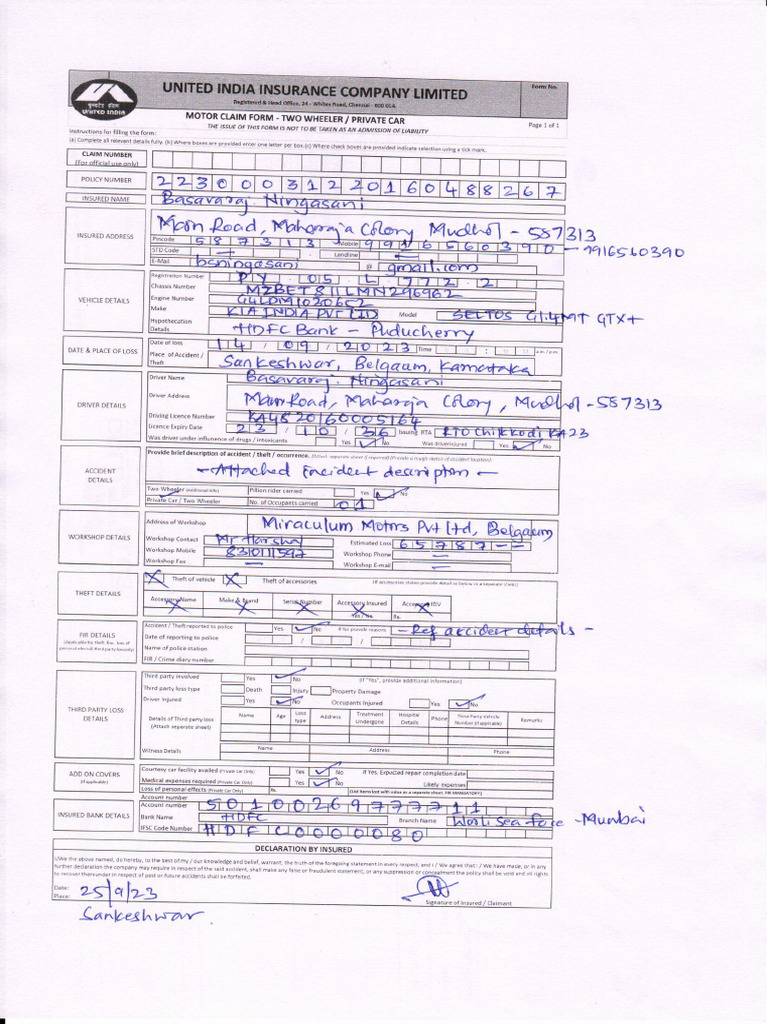 UNITED INDIA INSURANCE COMPANY LIMITED
Form No.
Registered & Head Office, 24 - Whites Road, Chennai - 600 014
यूनाइटेड इण्डिया
UNITED INDIA
MOTOR CLAIM FORM - TWO WHEELER / PRIVATE CAR
Page 1 of 1
THE ISSUE OF THIS FORM IS NOT TO BE TAKEN AS AN ADMISSION OF LIABILITY
Instructions for filling the form:
(a) Complete all relevant details fully. (b) Where boxes are provided enter one letter per box. (c) Where check boxes are provided indicate selection using a tick mark.
CLAIM NUMBER
(For official use only)
POLICY NUMBER 2230003122016048 8267
INSURED NAME Basavaraj Ningasani
INSURED ADDRESS Main Road, Maharaja Colony Mudhol - 587313
Pincode 587313 Mobile 9916560390 - 9916560390
STD Code Landline
E-Mail bsningasani @ gmail.com
VEHICLE DETAILS
Registration Number PY 05 L 7722
Chassis Number MZBET811LMN296962
Engine Number G4LDM1020652
Make KIA INDIA PVT LTD Model SELTOS G1.4MT GTX+
Hypothecation Details HDFC Bank - Puducherry
DATE & PLACE OF LOSS
Date of loss 14 / 09 / 2023 Time a.m / p.m
Place of Accident / Theft Sankeshwar, Belgaum, Karnataka
DRIVER DETAILS
Driver Name Basavaraj Ningasani
Driver Address Main Road, Maharaja Colony, Mudhol - 587313
Driving Licence Number KA4820160005164
Licence Expiry Date 23 / 10 / 36 Issuing RTA RTO Chikkodi KA23
Was driver under influnence of drugs / intoxicants Yes No Was driver injured Yes No
ACCIDENT DETAILS
Provide brief description of accident / theft / occurrence. (Attach seperate sheet if required) (Provide a rough sketch of accident location)
- Attached incident description -
Two Wheeler Pillion rider carried Yes No
Private Car / Two Wheeler No. of Occupants carried 01
WORKSHOP DETAILS
Address of Workshop Miraculum Motors Pvt Ltd, Belgaum
Workshop Contact Mr Harshaj Estimated Loss 65787--
Workshop Mobile 8310111597 Workshop Phone -
Workshop Fax - Workshop E-mail -
THEFT DETAILS
Theft of vehicle Theft of accessories (If accessories stolen provide detail in below in a separate sheet)
Accessory Name Make & Brand Serial Number Accessory Insured Accessory IDV
Yes/No Rs.
FIR DETAILS
(Applicable for theft, fire, loss of personal effects & third party liability)
Accident / Theft reported to police Yes No If No provide reasons - Ref accident details -
Date of reporting to police / /
Name of police station
FIR / Crime diary number
THIRD PARTY LOSS DETAILS
Third party involved Yes No (If "Yes", provide additional information)
Third party loss type Death Injury Property Damage
Driver Injured Yes No Occupants Injured Yes No
Details of Third party loss (Attach seperate sheet)
Name Age Loss type Address Treatment Undergone Hospital Details Phone Third Party Vehicle Number (if applicable) Remarks
Witness Details Name Address Phone
ADD ON COVERS
(If applicable)
Courtesy car facility availed (Private Car Only) Yes No If Yes, Expected repair completion date
Medical expenses required (Private Car Only) Yes No Likely expenses
Loss of personal effects (Private Car Only) Rs. (List item lost with value on a separate sheet. FIR MANDATORY)
INSURED BANK DETAILS
Account number
Account number 50100269777711
Bank Name HDFC Branch Name Worli Sea face - Mumbai
IFSC Code Number HDFC0000080
DECLARATION BY INSURED
I/We the above named, do hereby, to the best of my / our knowledge and belief, warrant, the truth of the foregoing statement in every respect, and I / We agree that I / We have made, or in any
further declaration the company may require in respect of the said accident, shall make any false or fraudulent statement, or any suppression or concealment the policy shall be void and all rights
to recover thereunder in respect of past or future accidents shall be forfeited.
Date: 25/9/23
Place: Sankeshwar.
Signature of Insured / Claimant